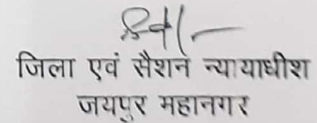 Sd/-
जिला एवं सैशन न्यायाधीश
जयपुर महानगर